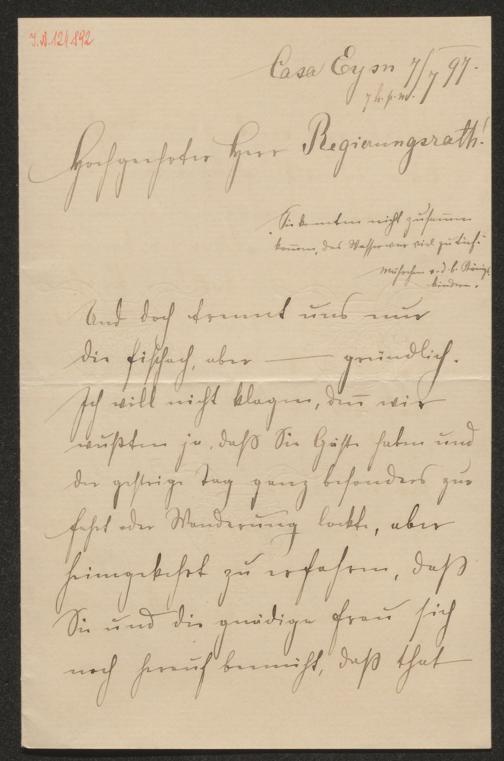 I.N. 121.892
Casa Eysn 7/7 97.
7 h. p. m.
Hochgeehrter Herr Regierungsrath!
"Sie konnten nicht zusammen
kommen, das Wasser war viel zu tief."
Märchen v. d. 2. Königs
kindern.
Und doch trennt uns nur
die Fischach, aber — gründlich.
Ich will nicht klagen, den̄ wir
wußten ja, daß Sie Gäste haben und
der gestrige Tag ganz besonders zur
Fahrt oder Wanderung lockte, aber
heimgekehrt zu erfahren, daß
Sie und die gnädige Frau sich
noch herauf bemüht, daß that